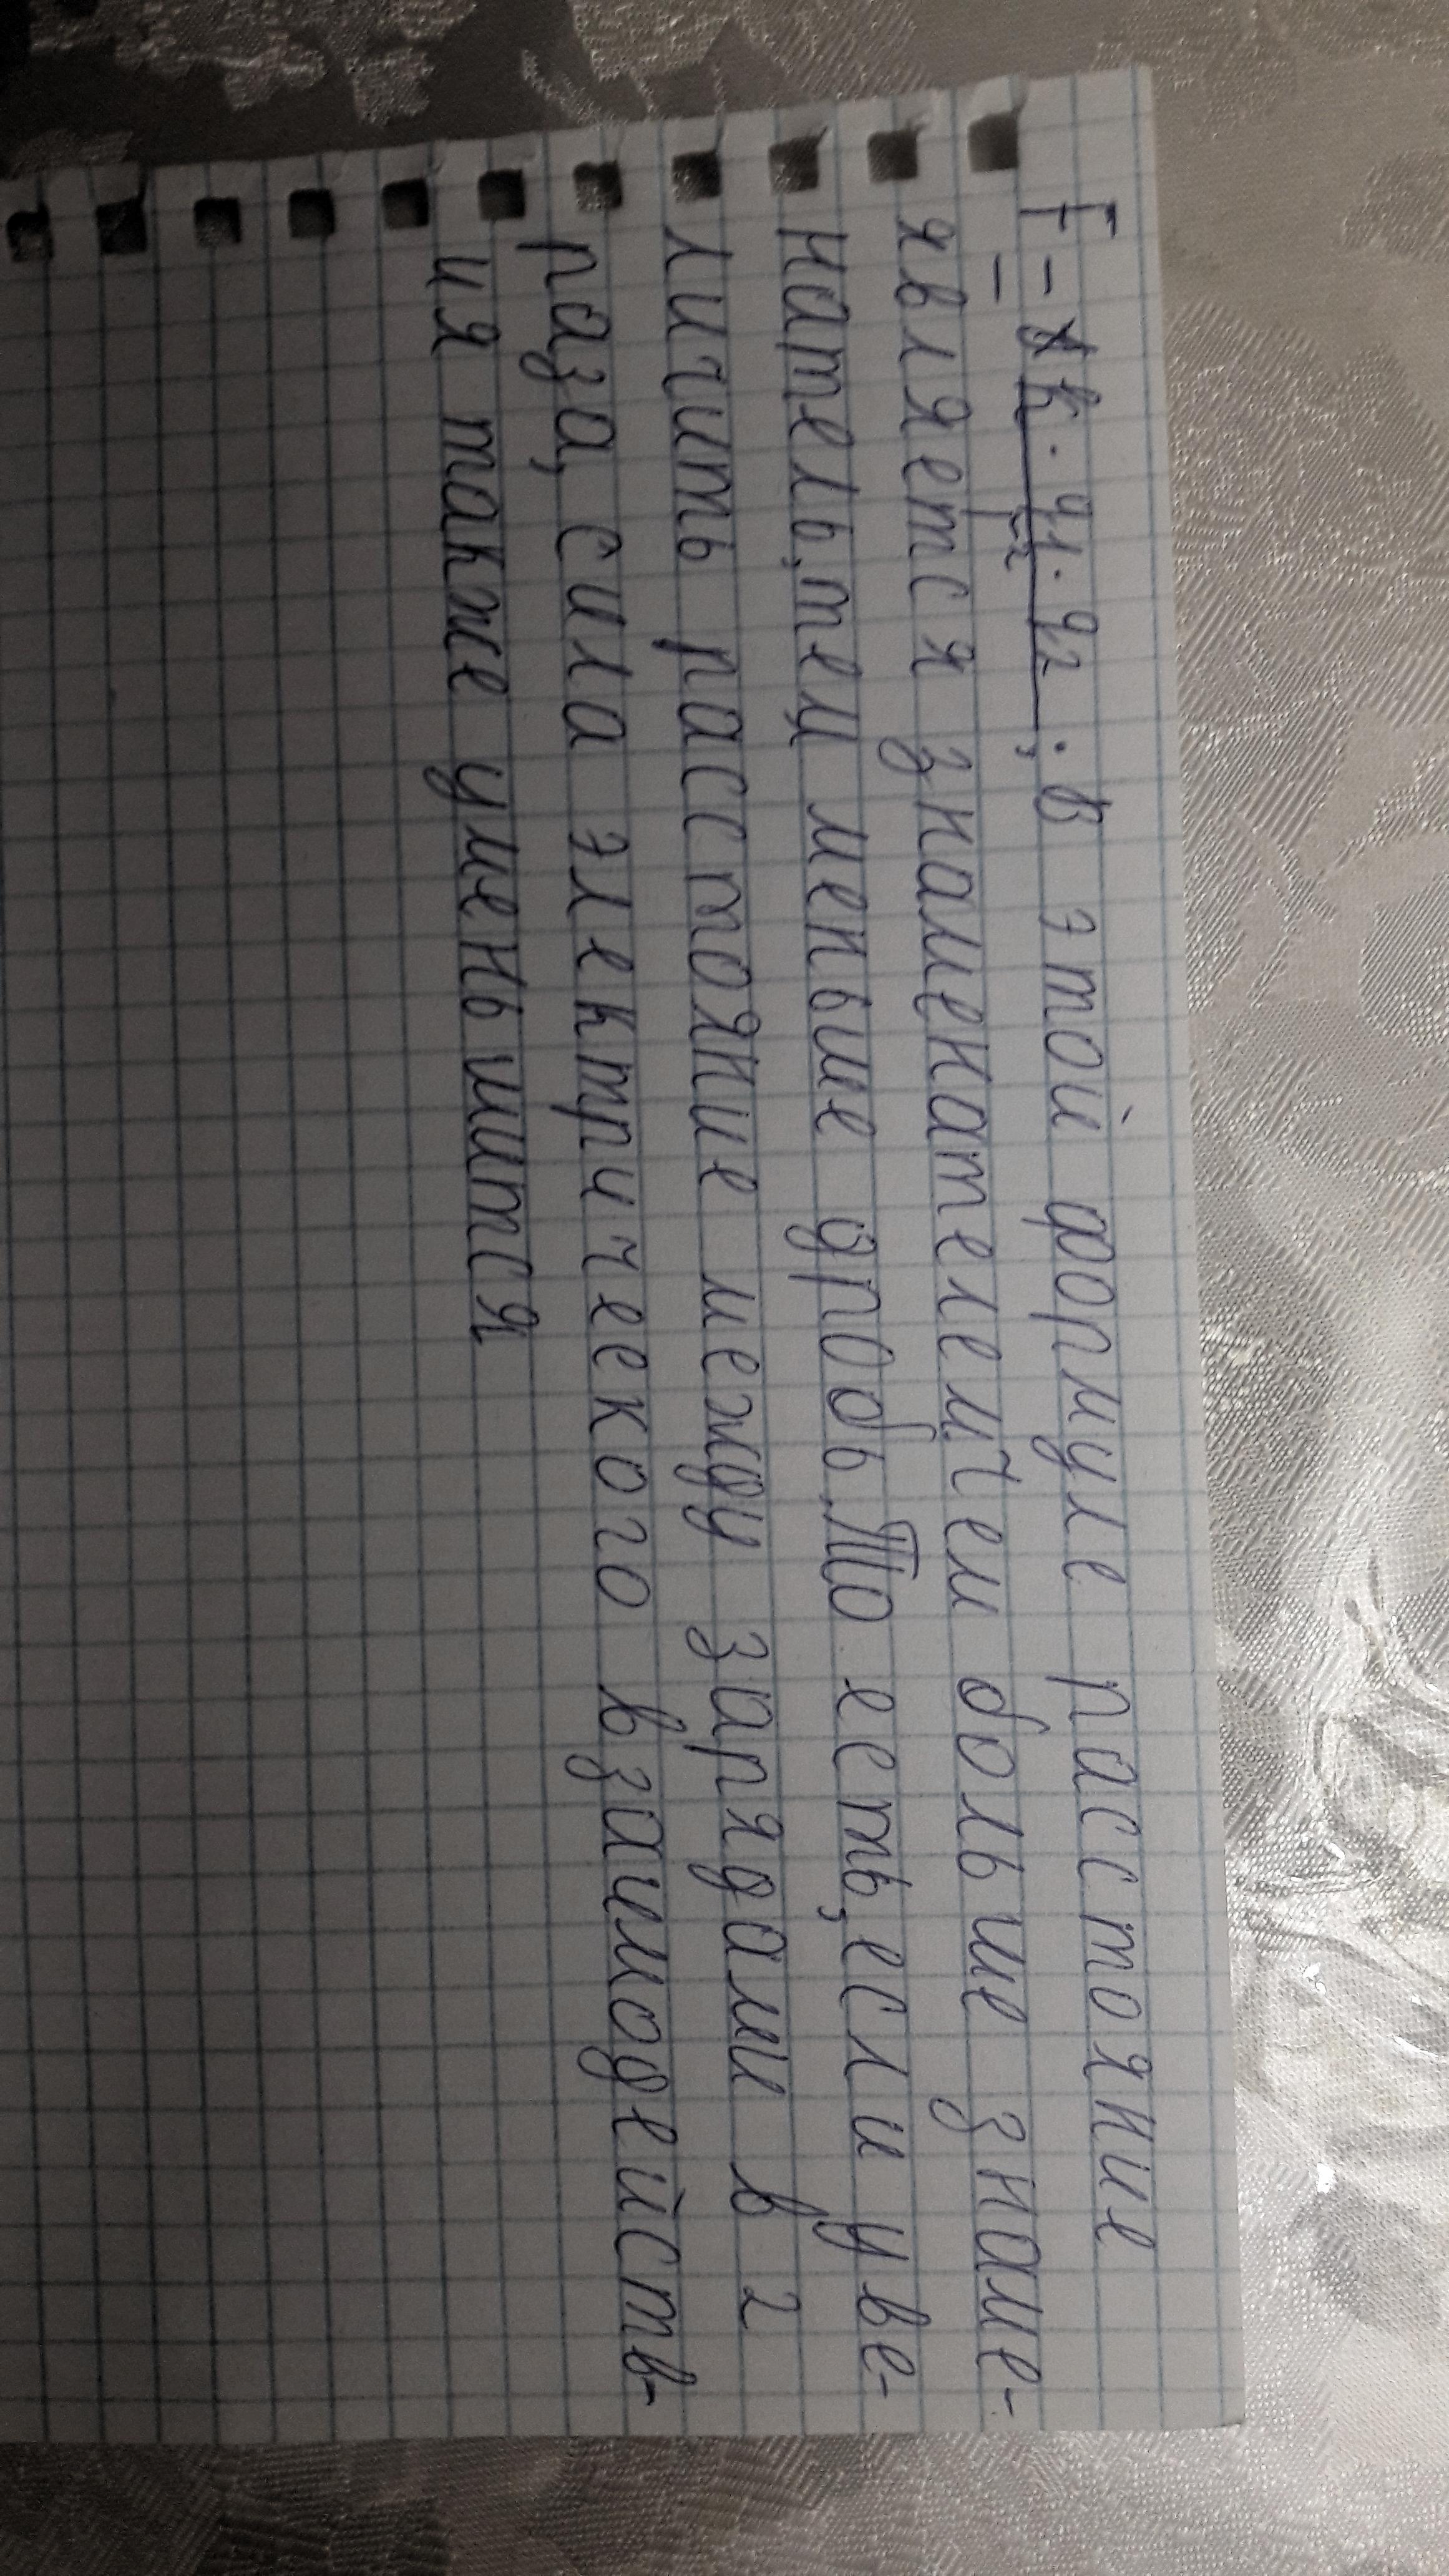 F = k · q1 · q2 / r2 ; В этой формуле расстояние
является знаменателем. Чем больше знаме-
натель, тем меньше дробь. То есть, если уве-
личить расстояние между зарядами в 2
раза, сила электрического взаимодейств-
ия также уменьшится